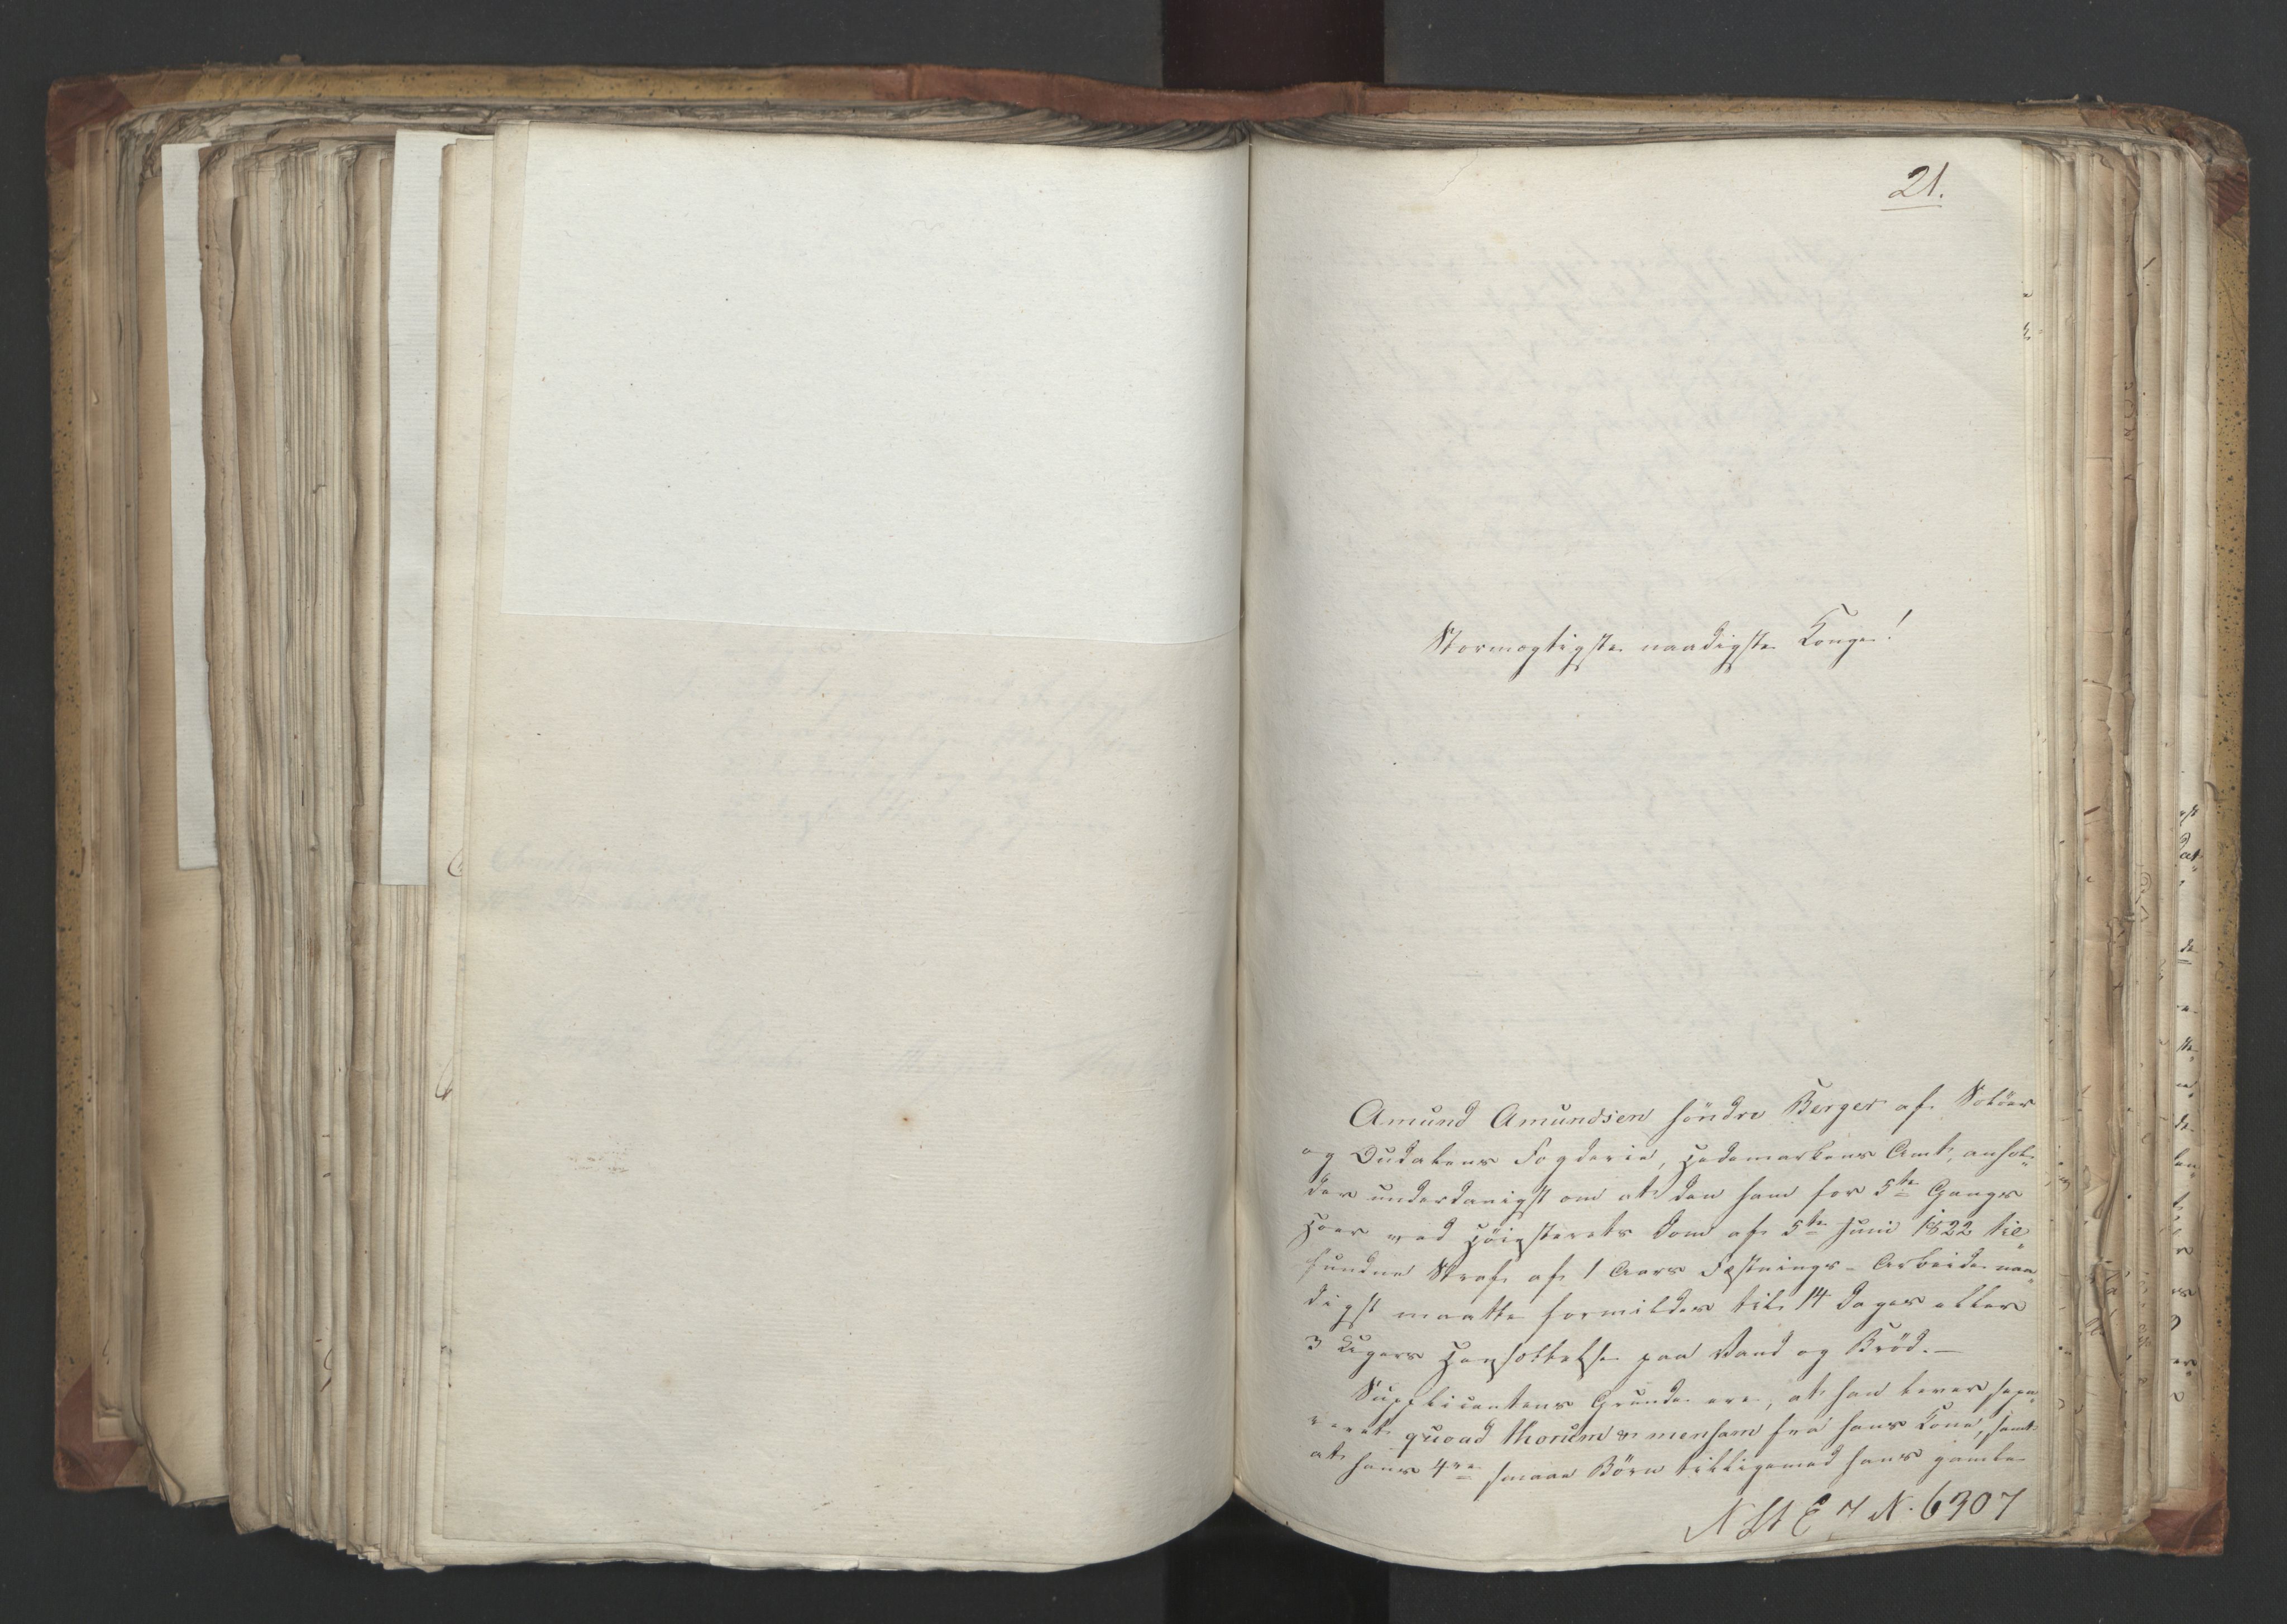 21.
Stormægtigste naadigste Konge!
Amund Amundsen söndre Berger af Solöer
og Oudalens Fogderie, Hedemarkens Amt, anhol„
der underdanigst om at den ham for 5te Gangs
Hoer ved Höiesterets Dom af 5te Juni 1822 til„
fundne Straf af 1 Aars Fæstnings-Arbeide naa„
digst maatte formildes til 14 Dages eller
3 Ugers Hensættelse paa Vand og Bröd.—
Supplicantens Grunde ere, at han lever sepa„
reret quoad thorum & mensam fra hans Kone, samt
at hans 4re smaae Börn tilligemed hans gamle
N. 6307